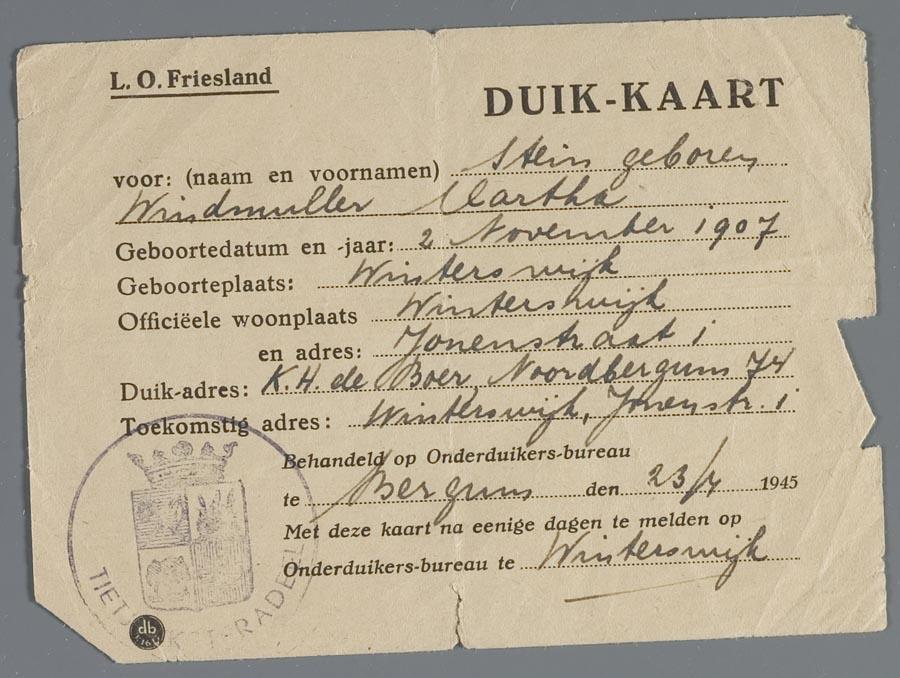 L. O. Friesland
DUIK-KAART
voor: (naam en voornamen) Stein geboren
Windmuller Martha
Geboortedatum en -jaar: 2 November 1907
Geboorteplaats: Winterswijk
Officiëele woonplaats Winterswijk
en adres: Jonenstraat 1
Duik-adres: K.H. de Boer, Noordbergum 74
Toekomstig adres: Winterswijk, Jonenstr. 1
Behandeld op Onderduikers-bureau
te Bergum den 23/4 1945
Met deze kaart na eenige dagen te melden op
Onderduikers-bureau te Winterswijk
TIETJ
RADEEL
db